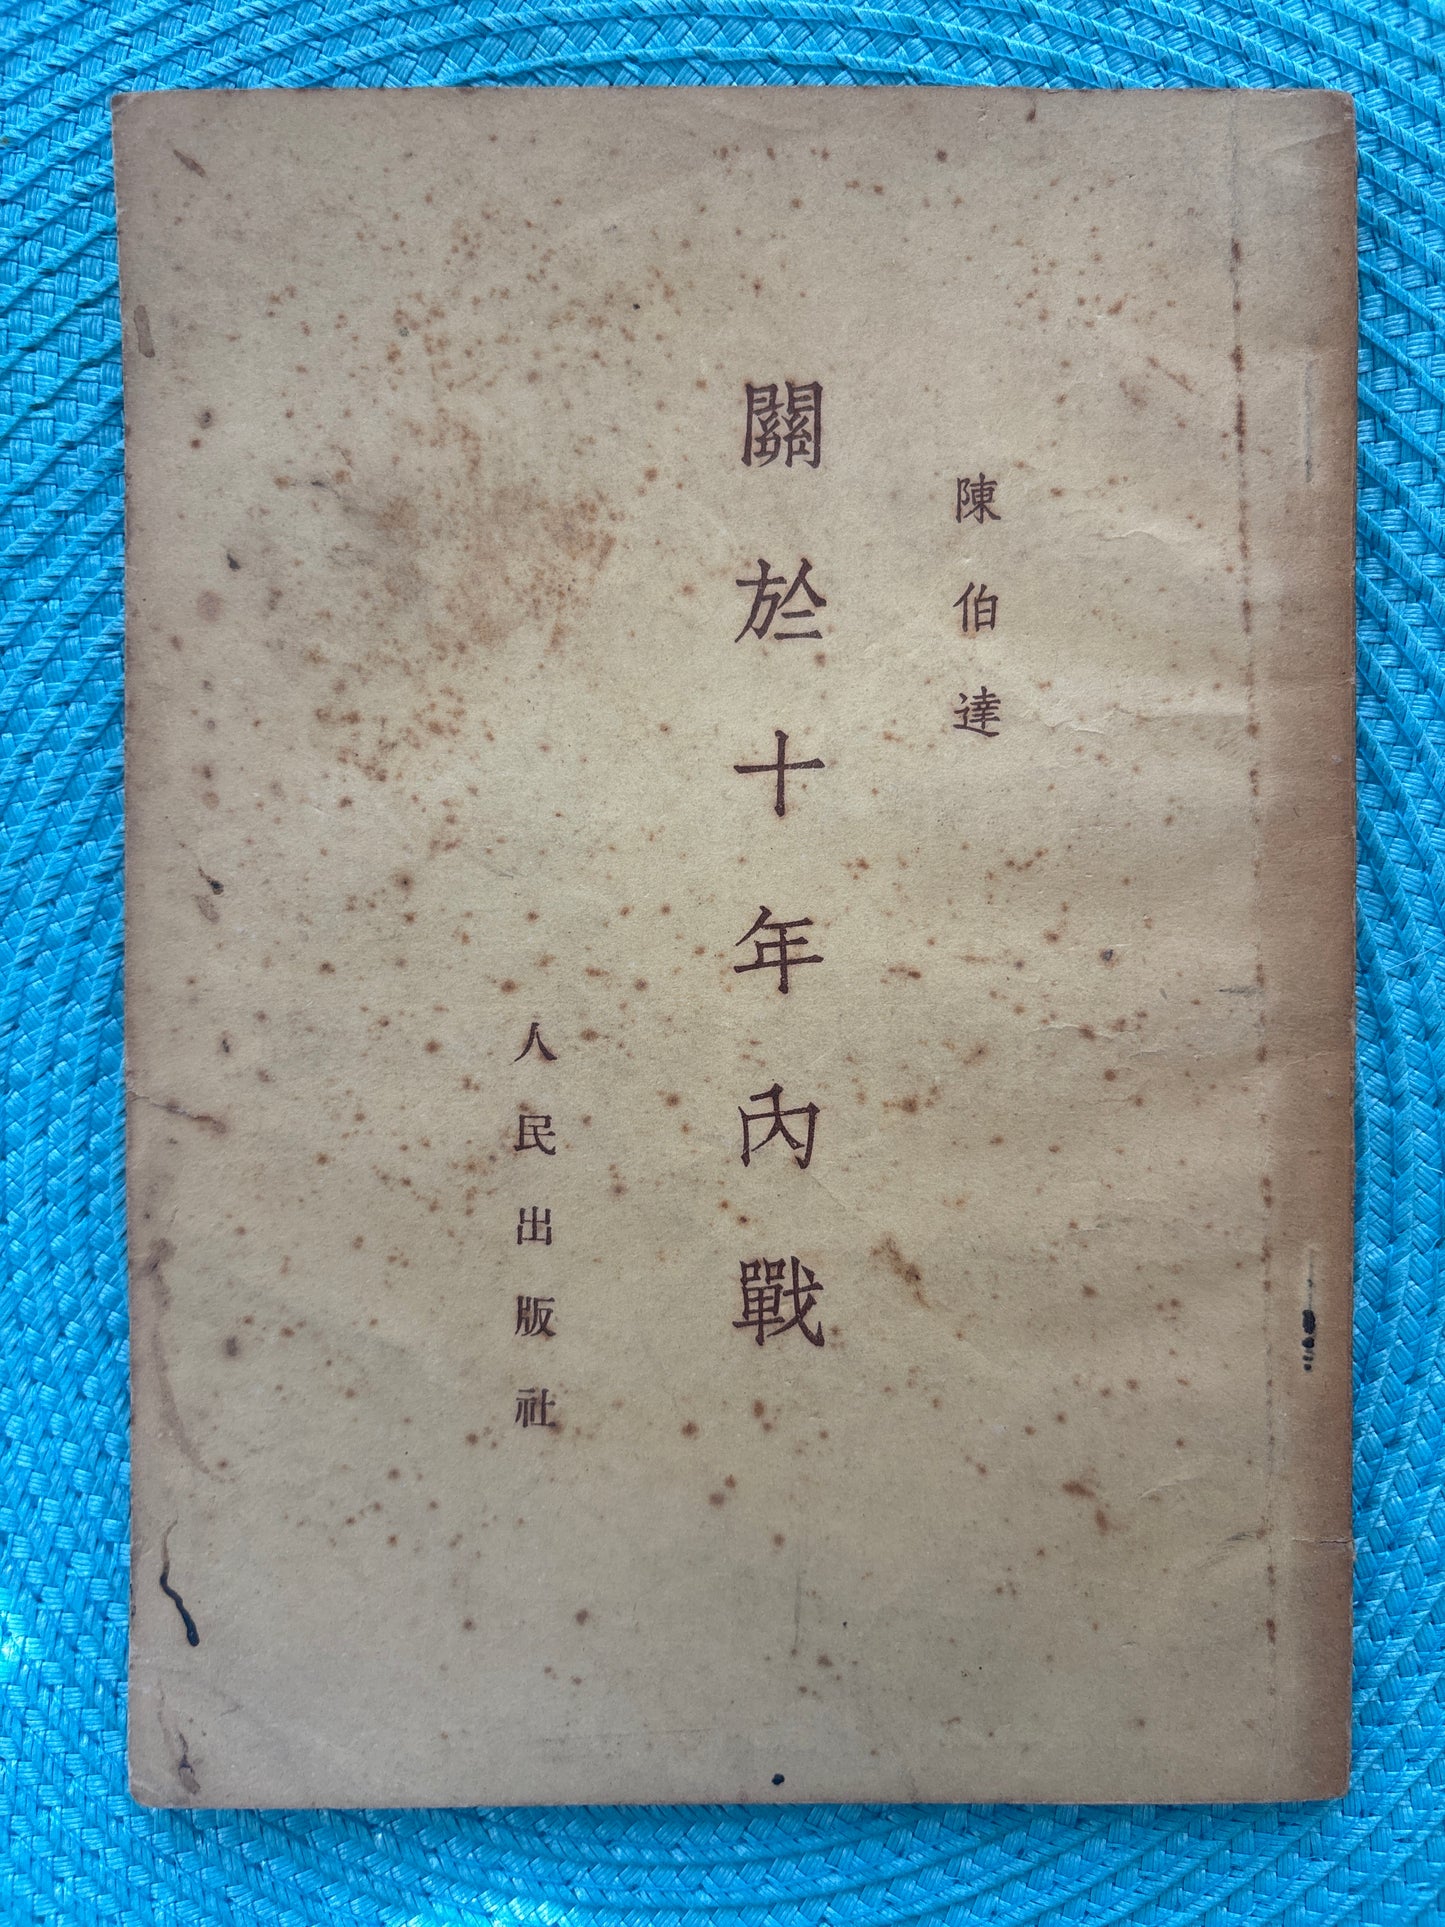 陳伯達
關於十年內戰
人民出版社